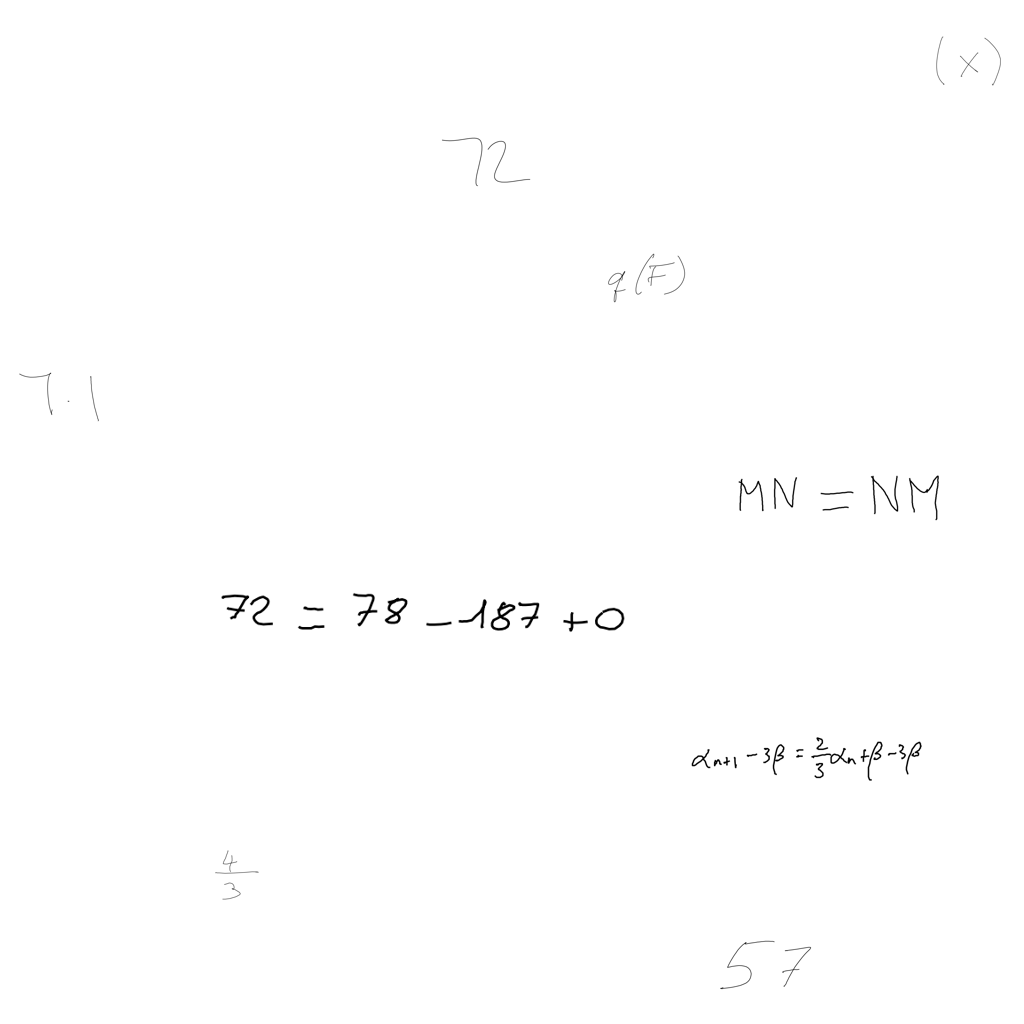 (x)
72
q(F)
7.1
MN = NM
72 = 78 - 187 + 0
α_{n+1} - 3β = \frac{2}{3}α_n + β - 3β
\frac{4}{3}
57